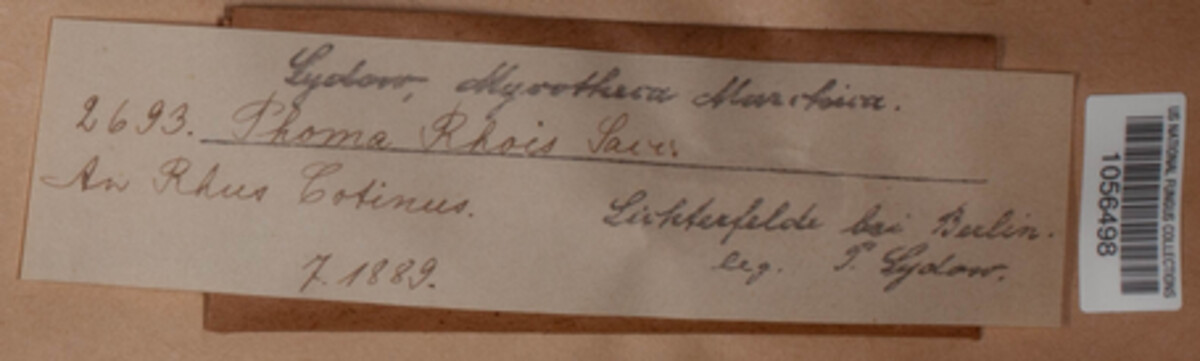 Sydow, Mycotheca Marchica.
2693. Phoma Rhois Sacc.
An Rhus Cotinus.
Lichterfelde bei Berlin.
7. 1889.
leg. P. Sydow.
US NATIONAL FUNGUS COLLECTIONS
1056498